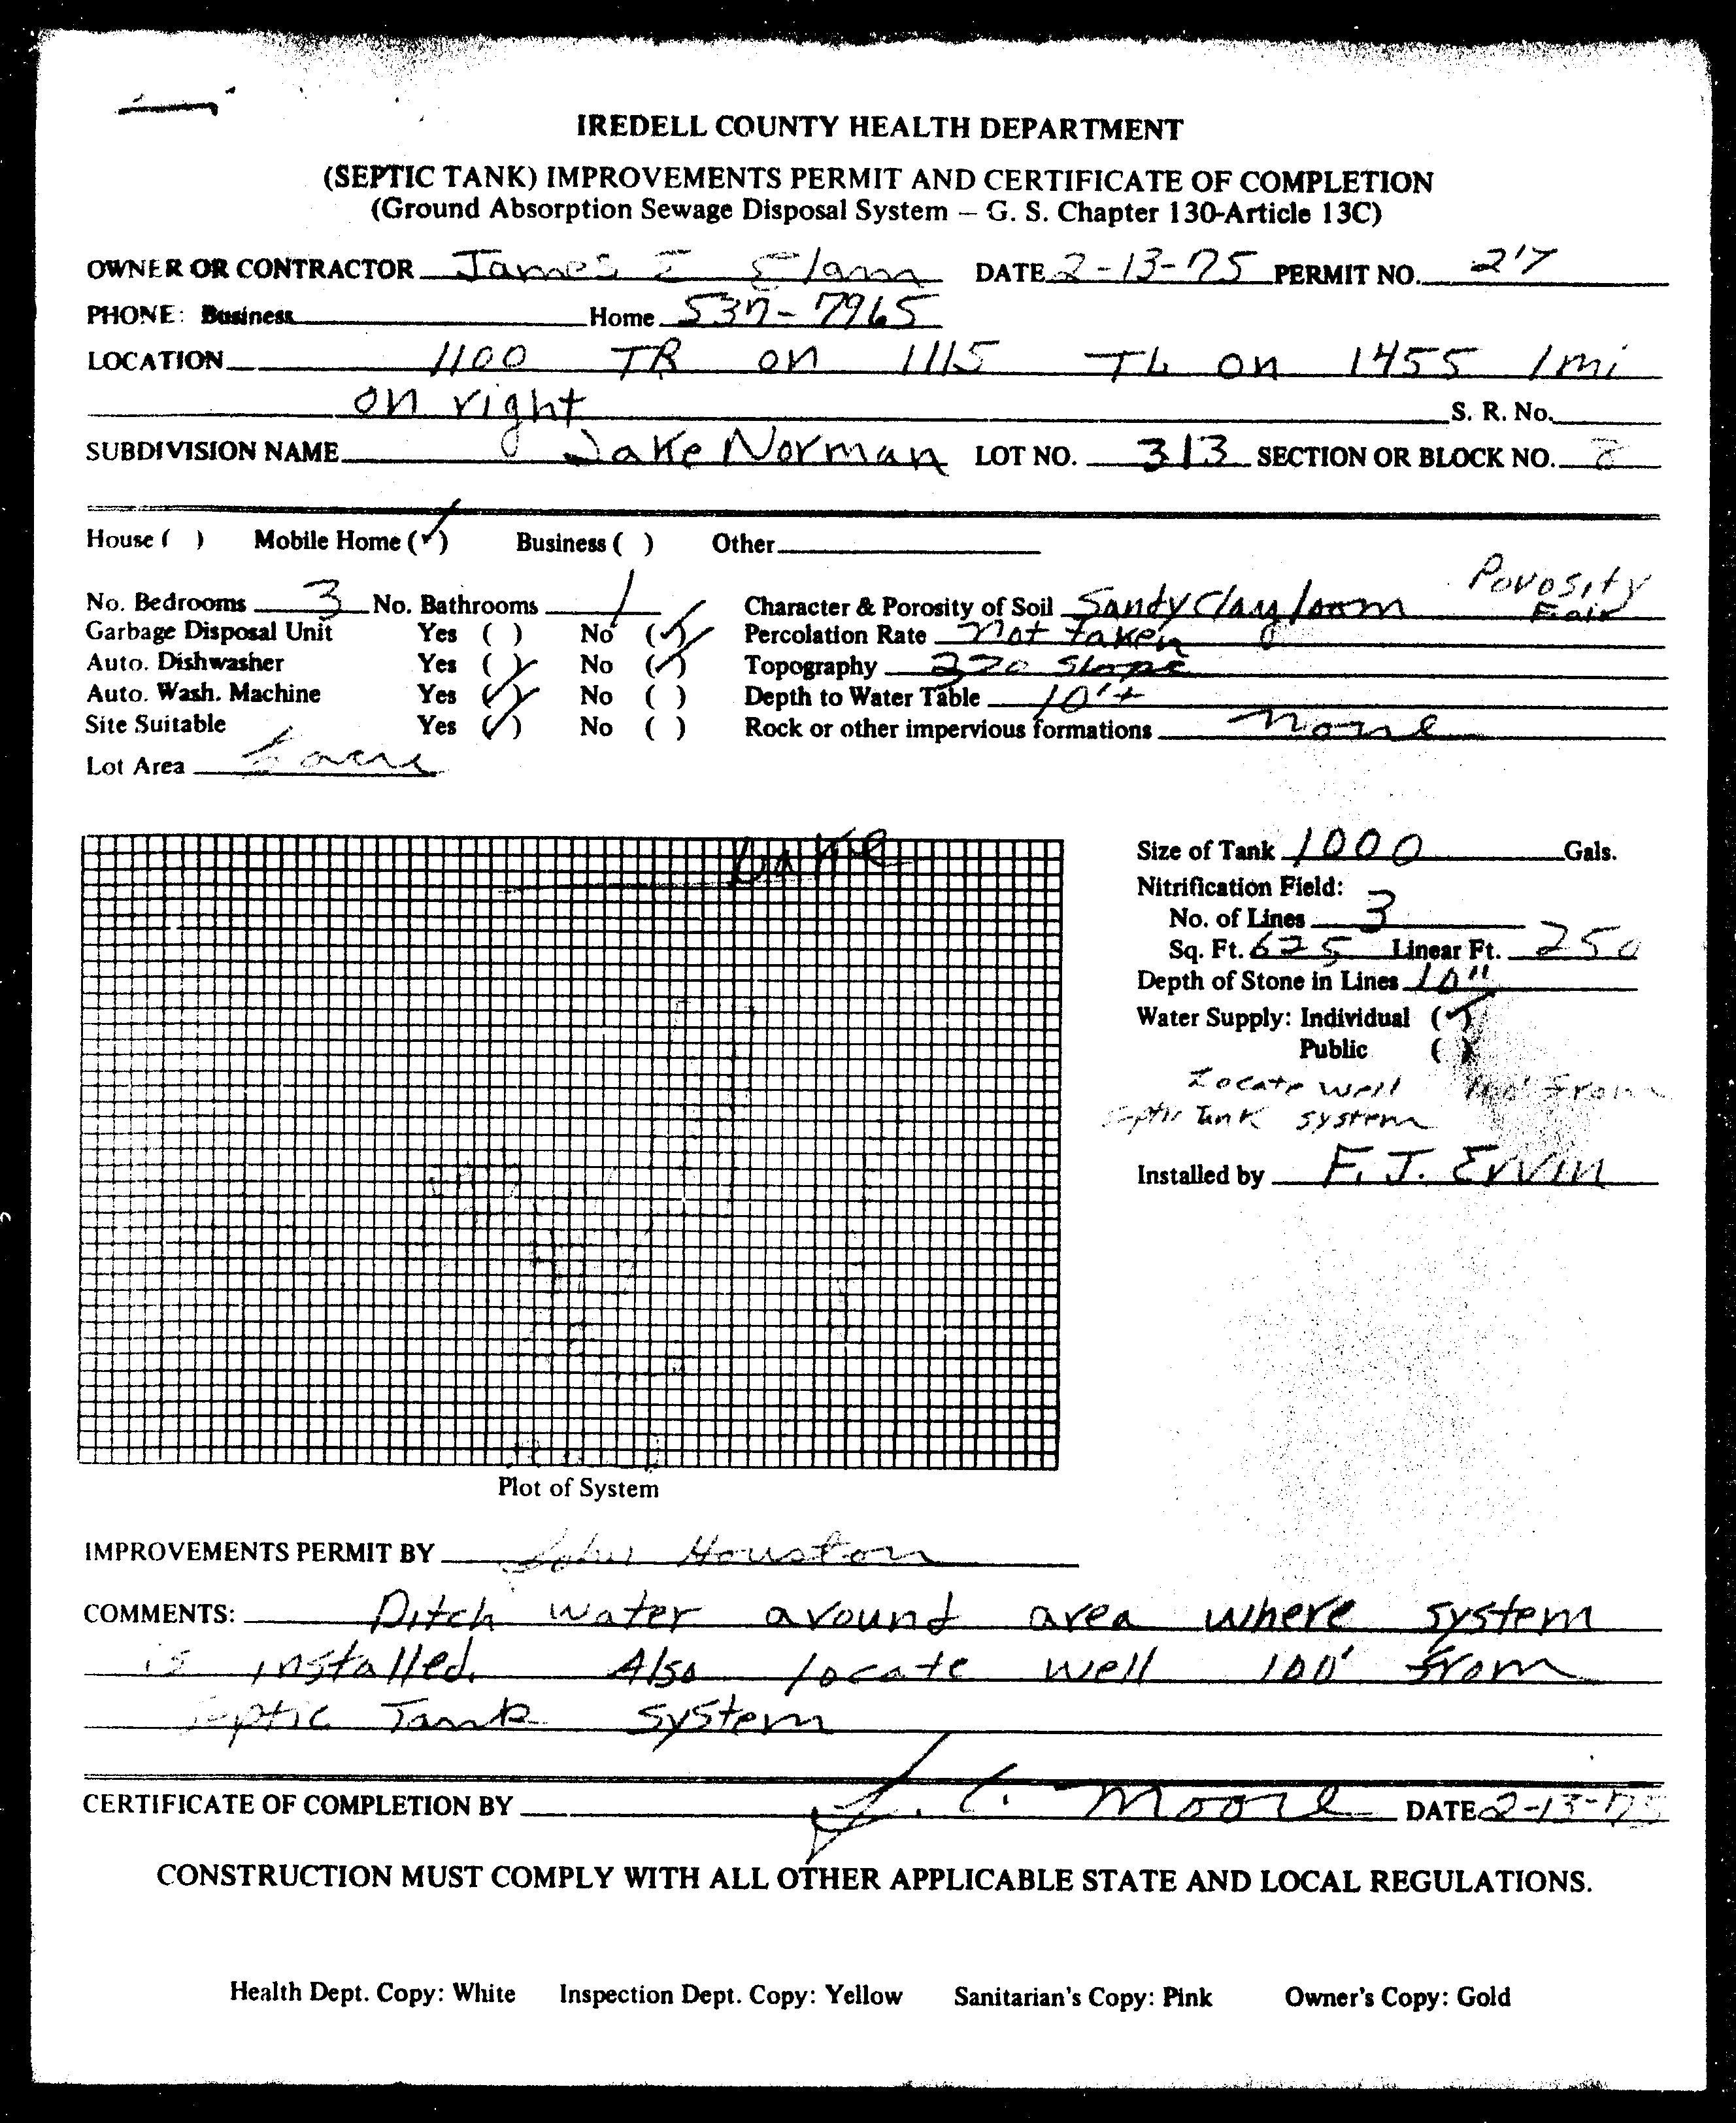 IREDELL COUNTY HEALTH DEPARTMENT
(SEPTIC TANK) IMPROVEMENTS PERMIT AND CERTIFICATE OF COMPLETION
(Ground Absorption Sewage Disposal System – G. S. Chapter 130-Article 13C)
OWNER OR CONTRACTOR James E Elam DATE 2-13-75 PERMIT NO. 217
PHONE: Business Home 537-7965
LOCATION 1100 TR on 1115 TL on 1455 1 mi
on right S. R. No.
SUBDIVISION NAME Lake Norman LOT NO. 313 SECTION OR BLOCK NO.
House ( ) Mobile Home (✓) Business ( ) Other
Porosity
No. Bedrooms 3 No. Bathrooms 1 Character & Porosity of Soil Sandy Clay loam Fair
Garbage Disposal Unit Yes ( ) No (✓) Percolation Rate not taken
Auto. Dishwasher Yes ( ) No (✓) Topography slope
Auto. Wash. Machine Yes (✓) No ( ) Depth to Water Table 10'+
Site Suitable Yes (✓) No ( ) Rock or other impervious formations none
Lot Area acre
Lake
Size of Tank 1000 Gals.
Nitrification Field:
No. of Lines 3
Sq. Ft. 625 Linear Ft. 250
Depth of Stone in Lines 10"
Water Supply: Individual (✓)
Public ( )
Locate well 100' From
Septic Tank system
Installed by F. J. Ervin
Plot of System
IMPROVEMENTS PERMIT BY John Houston
COMMENTS: Ditch water around area where system
is installed. Also locate well 100' from
Septic Tank system
CERTIFICATE OF COMPLETION BY J. C. Moore DATE 2-13-75
CONSTRUCTION MUST COMPLY WITH ALL OTHER APPLICABLE STATE AND LOCAL REGULATIONS.
Health Dept. Copy: White Inspection Dept. Copy: Yellow Sanitarian's Copy: Pink Owner's Copy: Gold